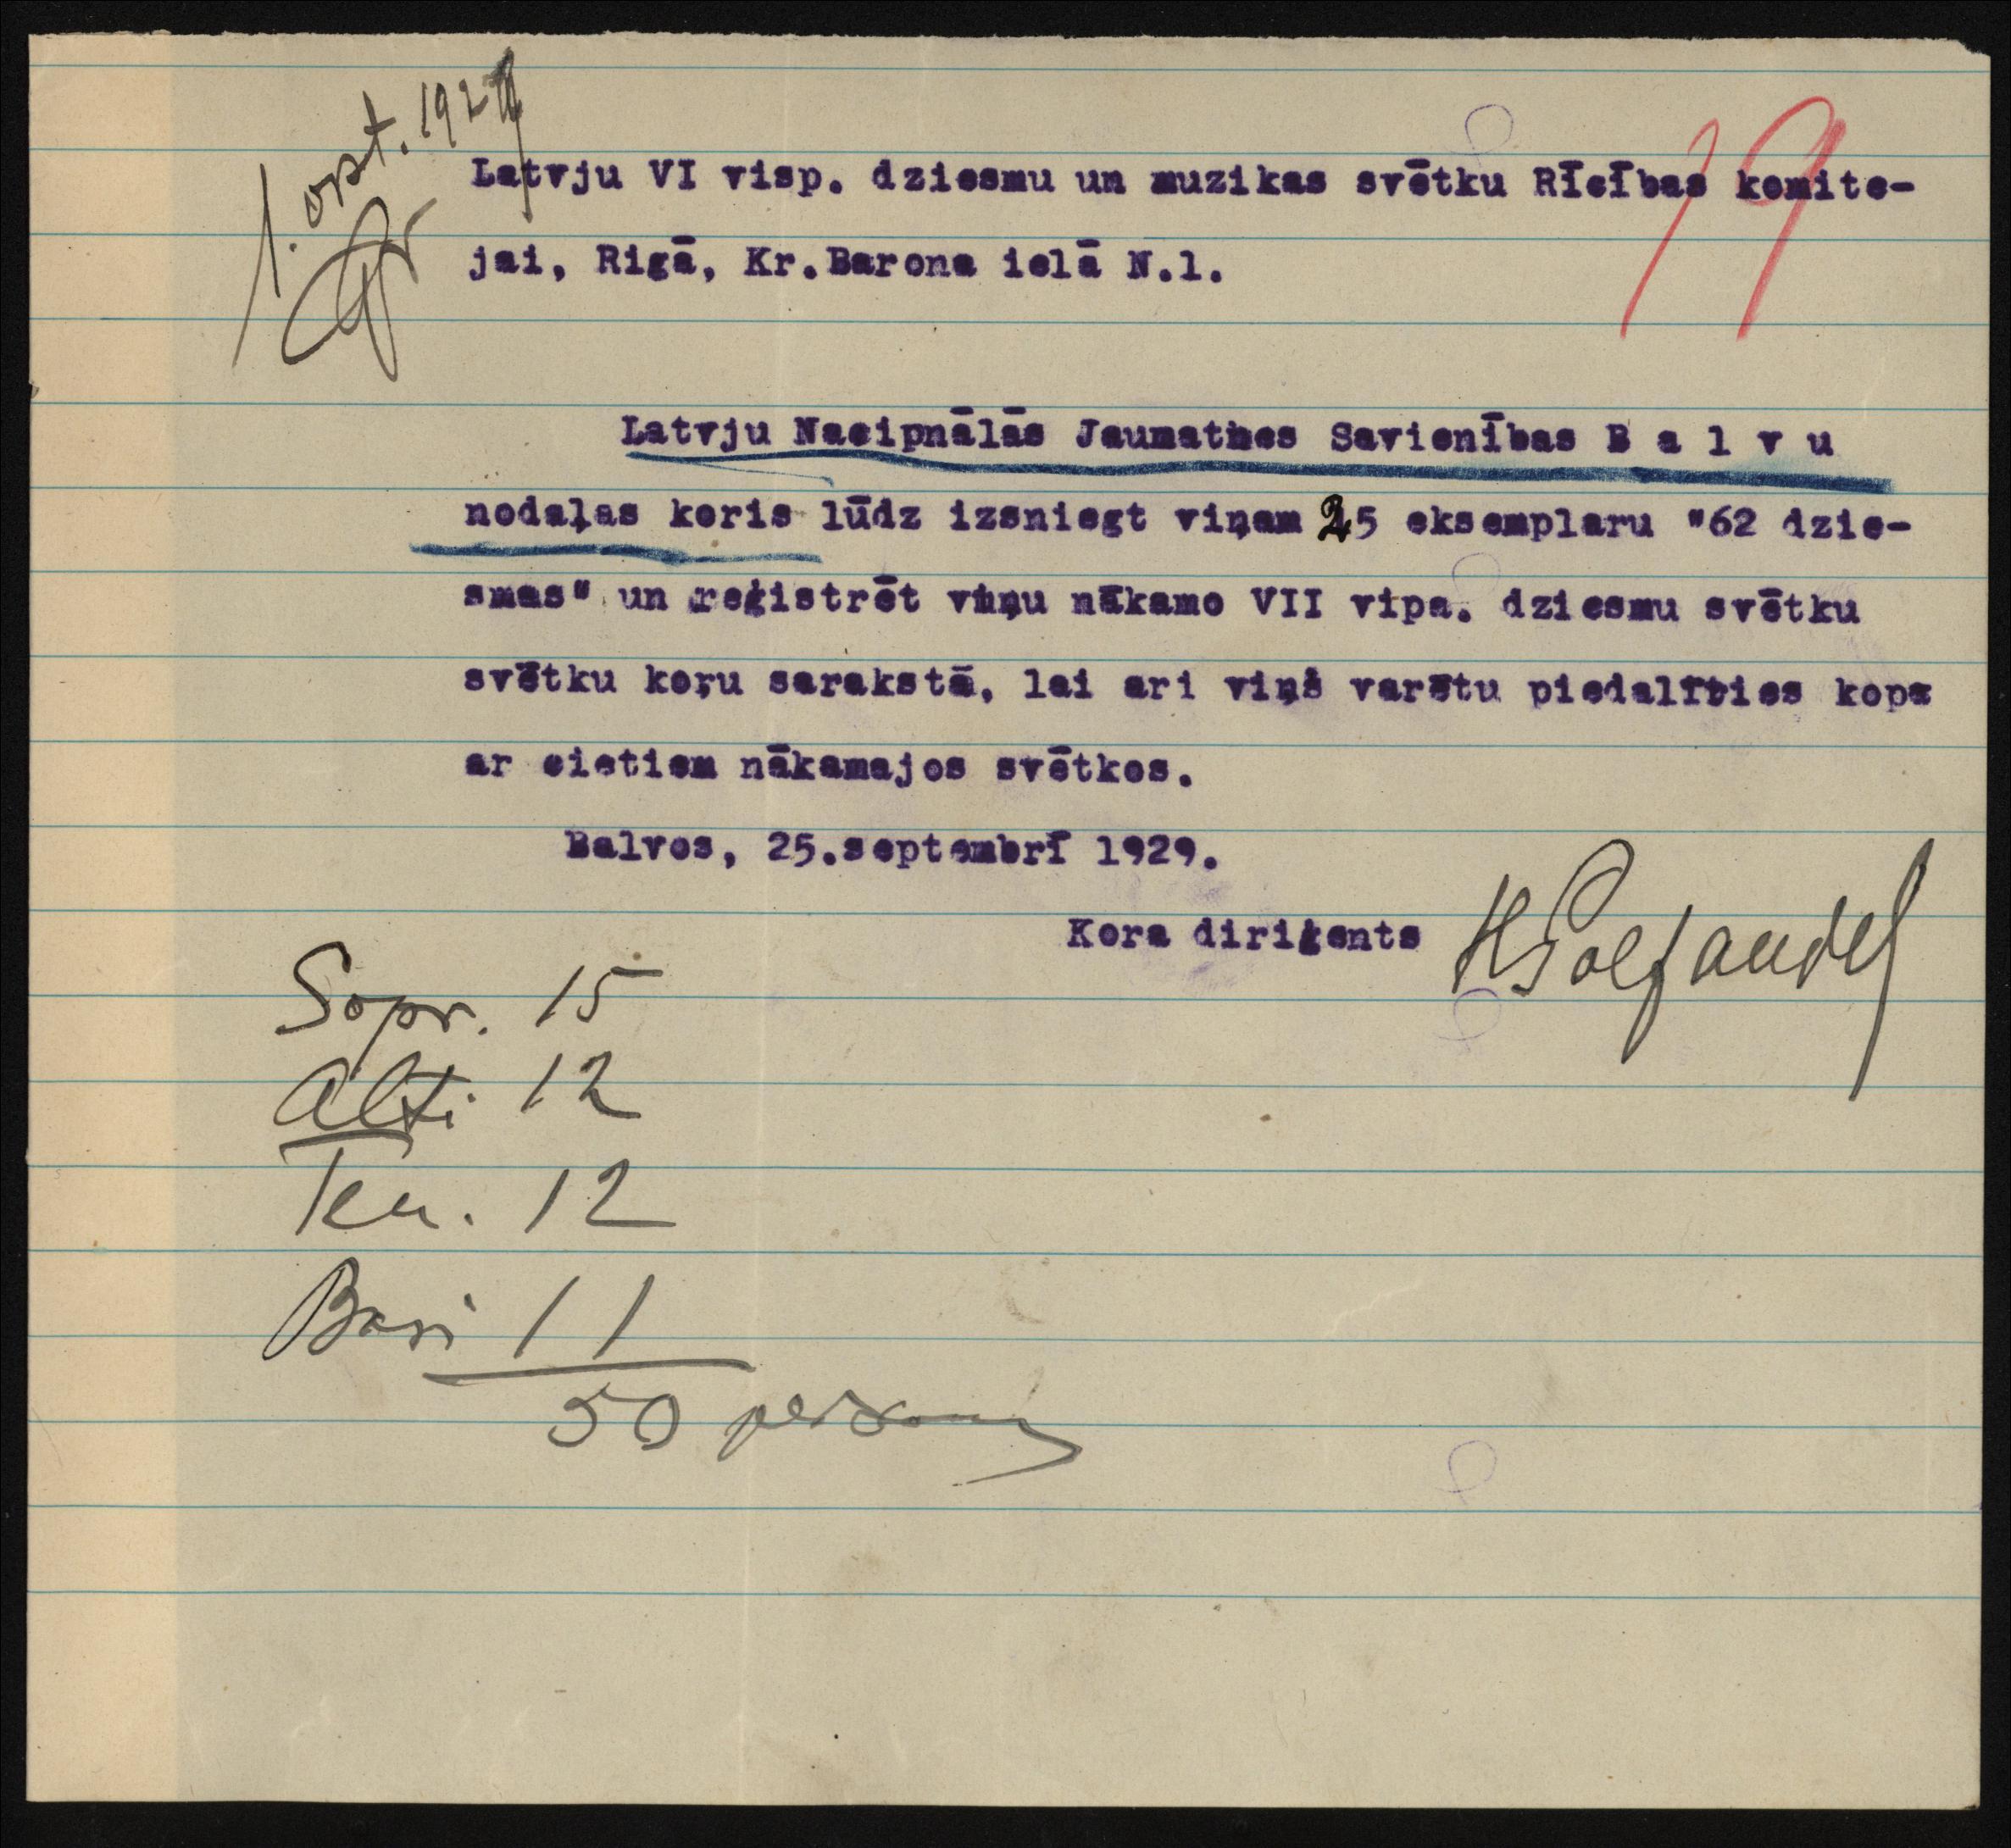 1. okt. 1929
19
Latvju VI visp. dziesmu un muzikas svētku Rīcības komite-
jai, Rigā, Kr.Barona ielā N.1.
Latvju Nacipnālās Jaunatnes Savienības B a l v u
nodaļas koris lūdz izsniegt viņam 25 eksemplaru "62 dzie-
smas" un reģistrēt viņu nākamo VII vipa. dziesmu svētku
svētku koŗu sarakstā, lai ari viņš varētu piedalīties kopa
ar citiem nākamajos svētkos.
Balvos, 25.septembrī 1929.
Kora diriģents
Sopr. 15
Alti 12
Ten. 12
Basi 11
50 personas